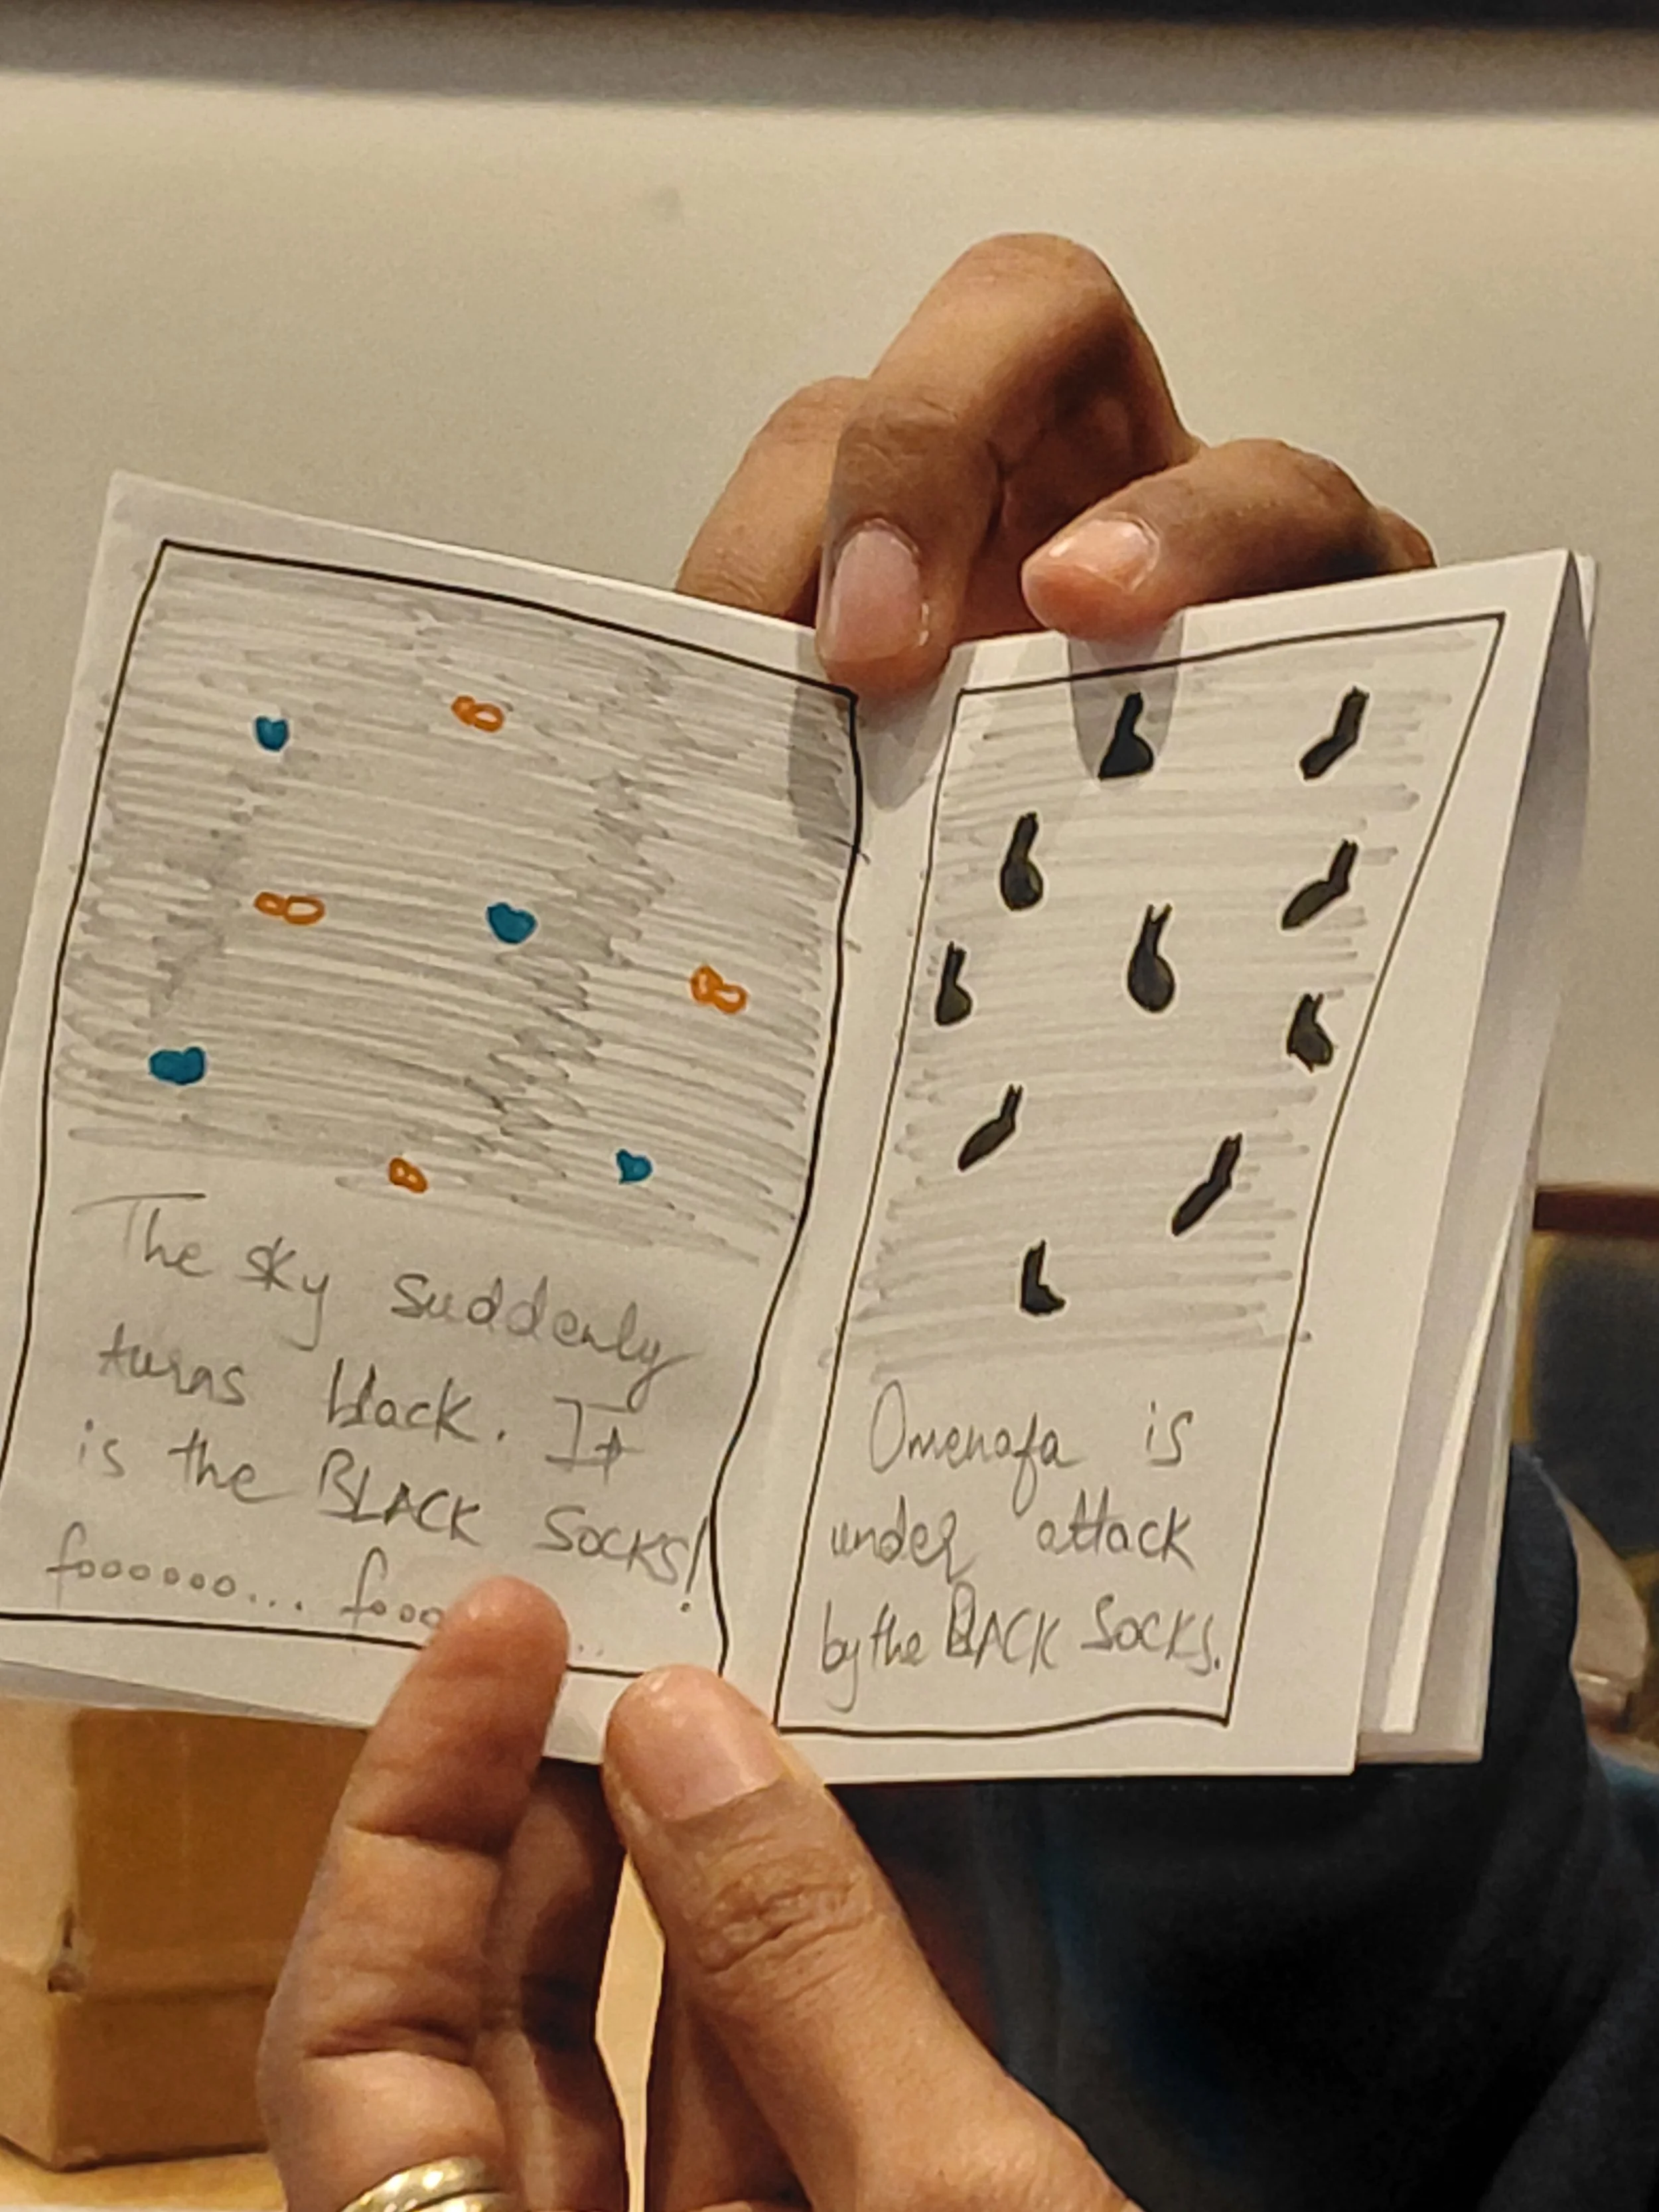 The sky suddenly
turns black. It
is the BLACK SOCKS!
foooooo... fooo
Omenafa is
under attack
by the BLACK SOCKS.